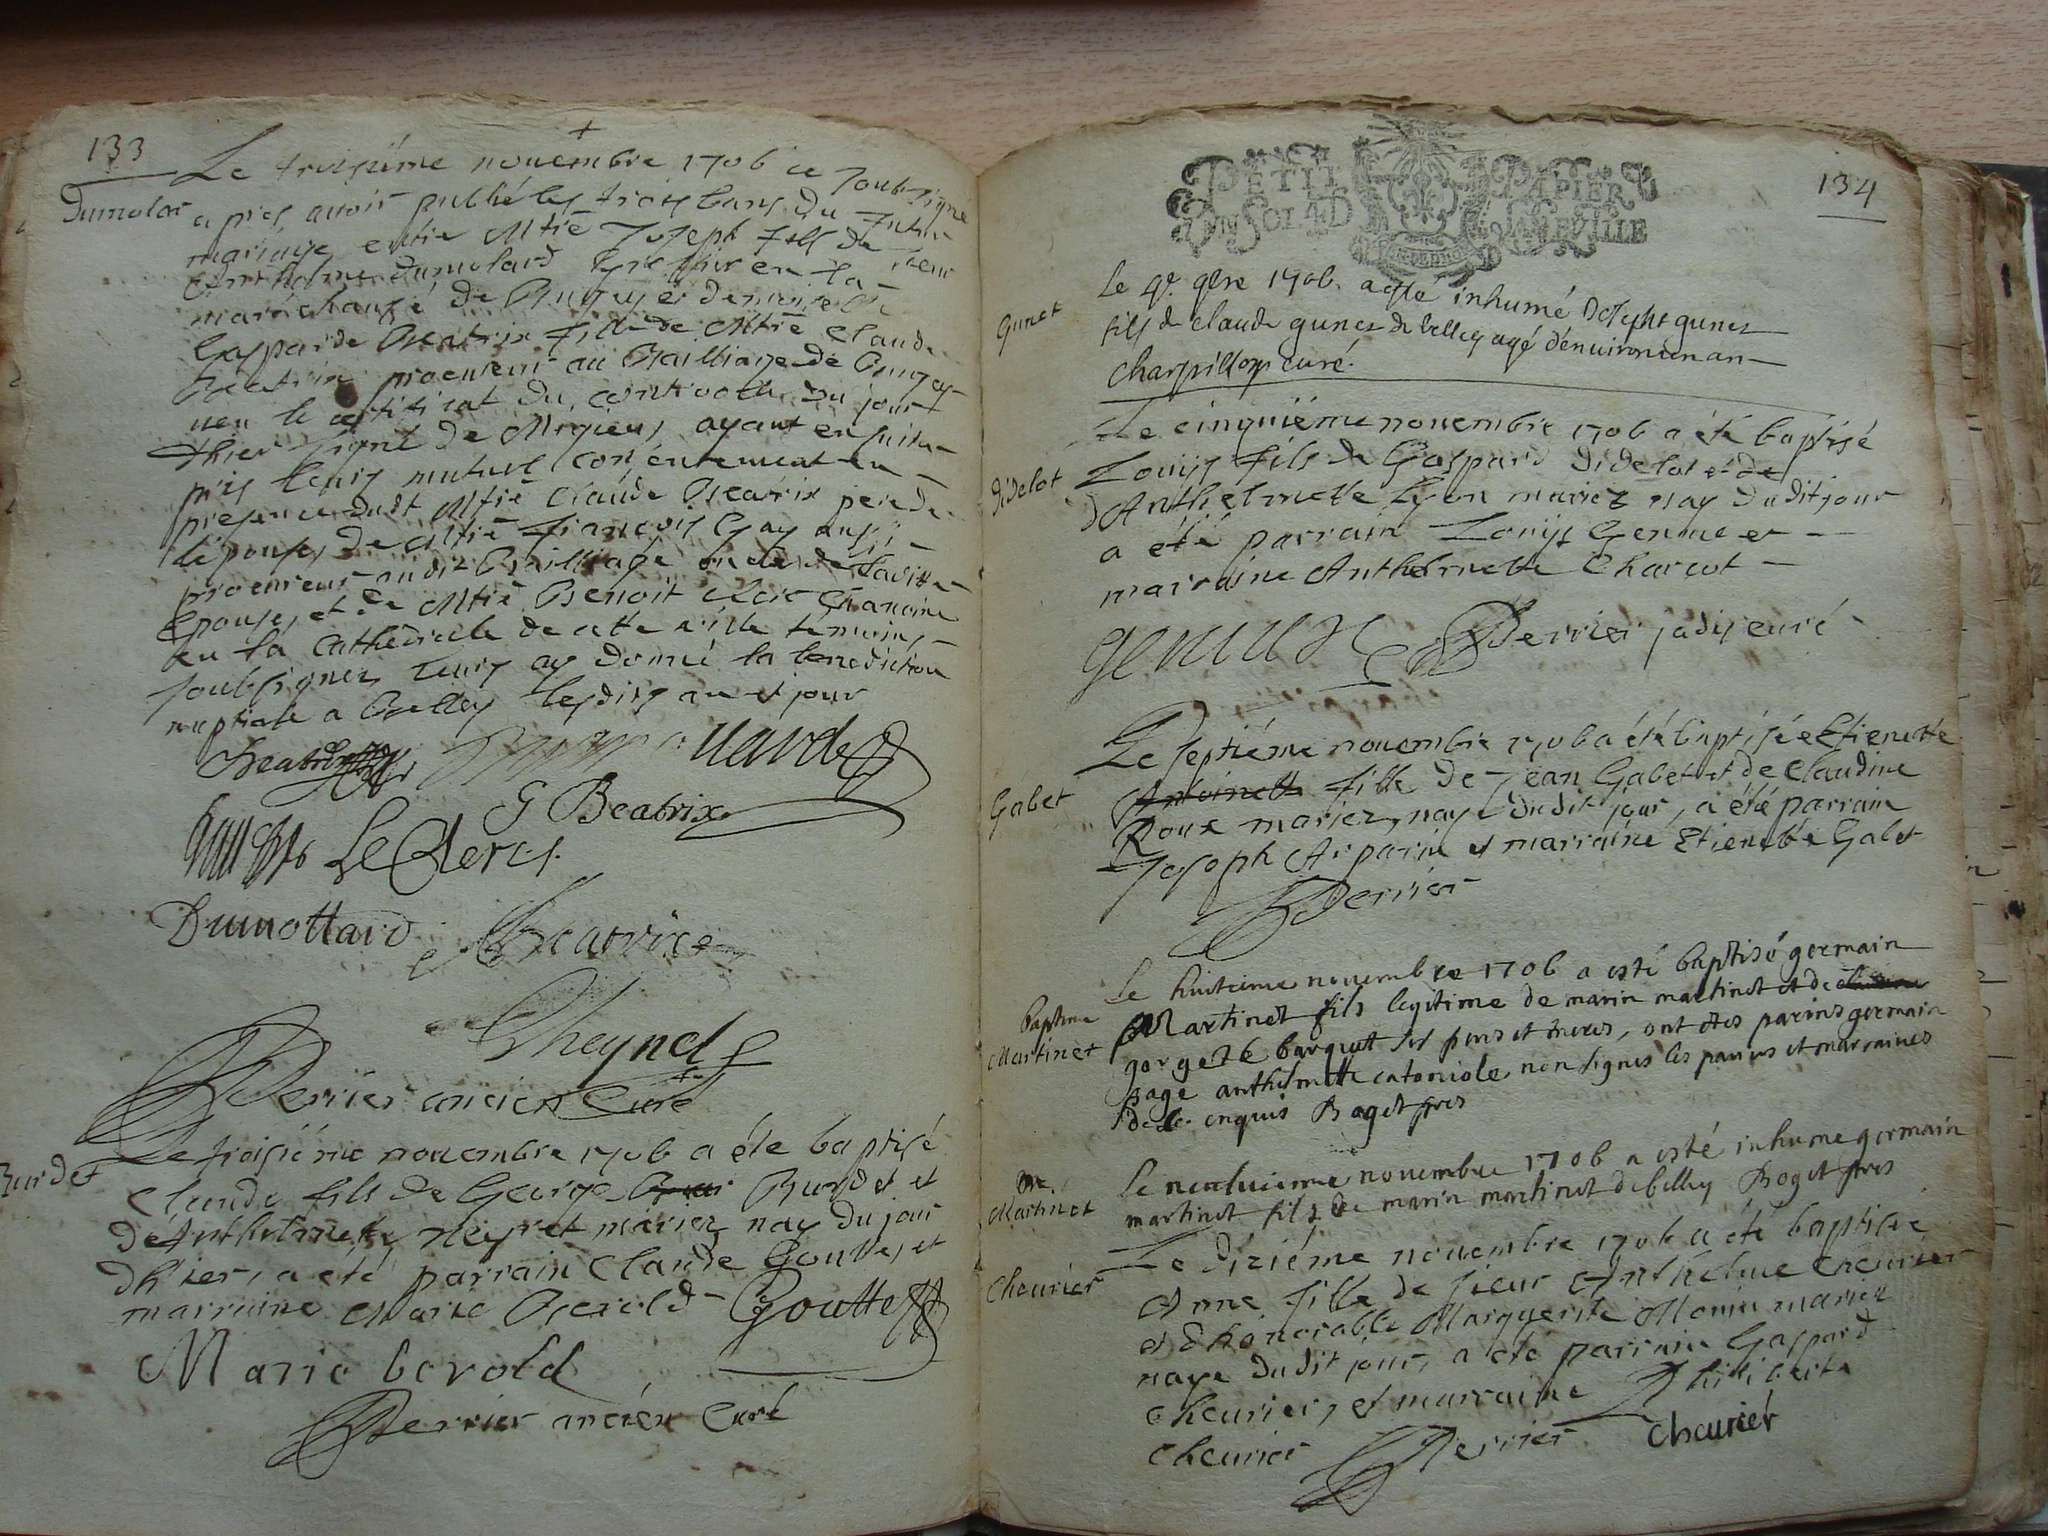 133
Dumolar
Le troisiéme novembre 1706 ie soubsigné
apres avoir publié les trois bans du futur
mariage entre Mtre Joseph fils de sieur
Anthelme Dumolard
maréchaussé de Bugey et demoiselle
Gasparde Beatrix fille de Mtre Claude
Beatrix procureur au Bailliage de Bugey
veu le certificat du controolle du jour
d'hier signé de Migieu, ayant ensuitte
pris leurs mutuel consentement en
presence dudt Mtre Claude Beatrix pere de
l'épouse, de Mtre François Gay aussi
procureur audt Bailliage oncle de laditte
épouse, et de Mtre Benoit chanoine
en la cathedralle de cette ville témoins
soubsignez leurs ay donné la benediction
nuptiale a Belley lesdits an et jour
Beatrix
G Beatrix
LeClerc
Dumollard Beatrice
Cheynel
Perrier ancien Curé
Burdet
Le troisiéme novembre 1706 a été baptisé
Claude fils de George Burdet et
d'Anthelmette Neyret mariez nay du jour
d'hier, a eté parrain Claude Goutte, et
marraine Marie Berold Goutte
Marie berold
Perrier ancien Curé
134
PETIT PAPIER
UN SOL 4D LA FEUILLE
Gunet
Le 4e 9bre 1706 a esté inhumé Joseph gunet
fils de claude gunet de belley agé d'environ un an
Charpillon curé.
Didelot
Le cinquiéme novembre 1706 a été baptisé
Louis fils de Gaspard Didelot et de
d'Anthelmette Lyon mariez nay dudit jour
a été parrain Louis Genine et
marraine Anthelmette Charcot
Perrier jadis curé
Gabet
Le septiéme novembre 1706 a été baptisée Etienette
Antoinette fille de Jean Gabet et de Claudine
Roux mariez, naye dudit jour, a été parrain
Joseph Arparin et marraine Etienette Gabet
Perrier
Baptme
Martinet
Le huitieme novembre 1706 a esté baptisé germain
Martinet fils legitime de marin martinet et de
gorgete barquet ses peres et meres, ont estes parins germain
page anthelmette catoniole non signes les parins et marraines
de ce enquis Boget pres
Martinet
Le neufvieme novembre 1706 a esté inhume germain
martinet fils de marin martinet de belley Boget pres
Cheurier
Le dixiéme novembre 1706 a été baptisée
Anne fille de sieur Anthelme Cheurier
et d'honorable Marguerite Monin mariez
naye dudit jour, a eté parrain Gaspard
Cheurier, et marraine Philiberte
Cheurier Perrier Cheurier